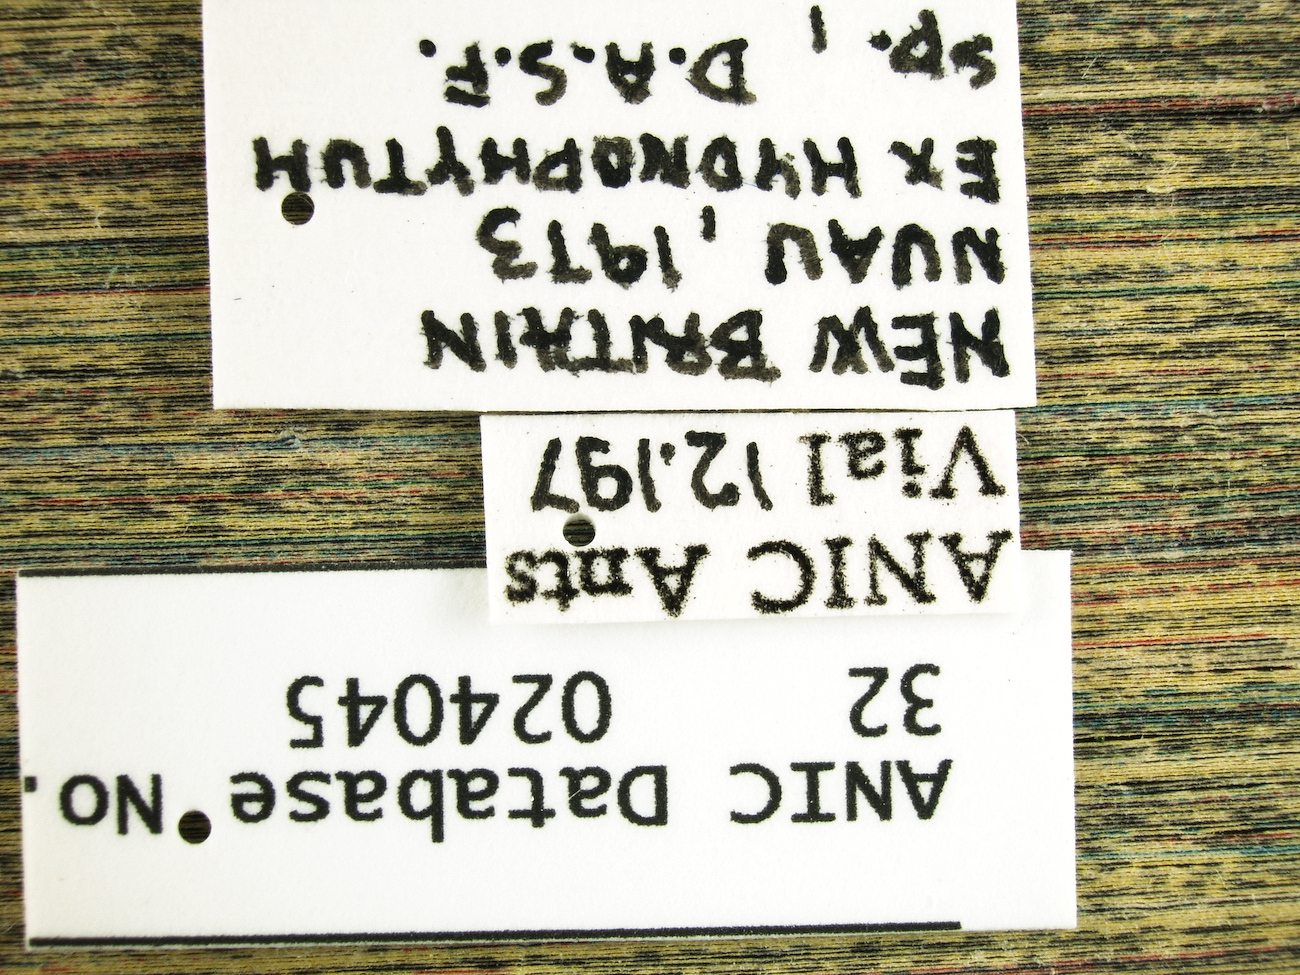 ANIC Database No.
32 024045
ANIC Ants
Vial 12.197
NEW BRITAIN
NUAU, 1973
EX HYDNOPHYTUM
sp., D.A.S.F.